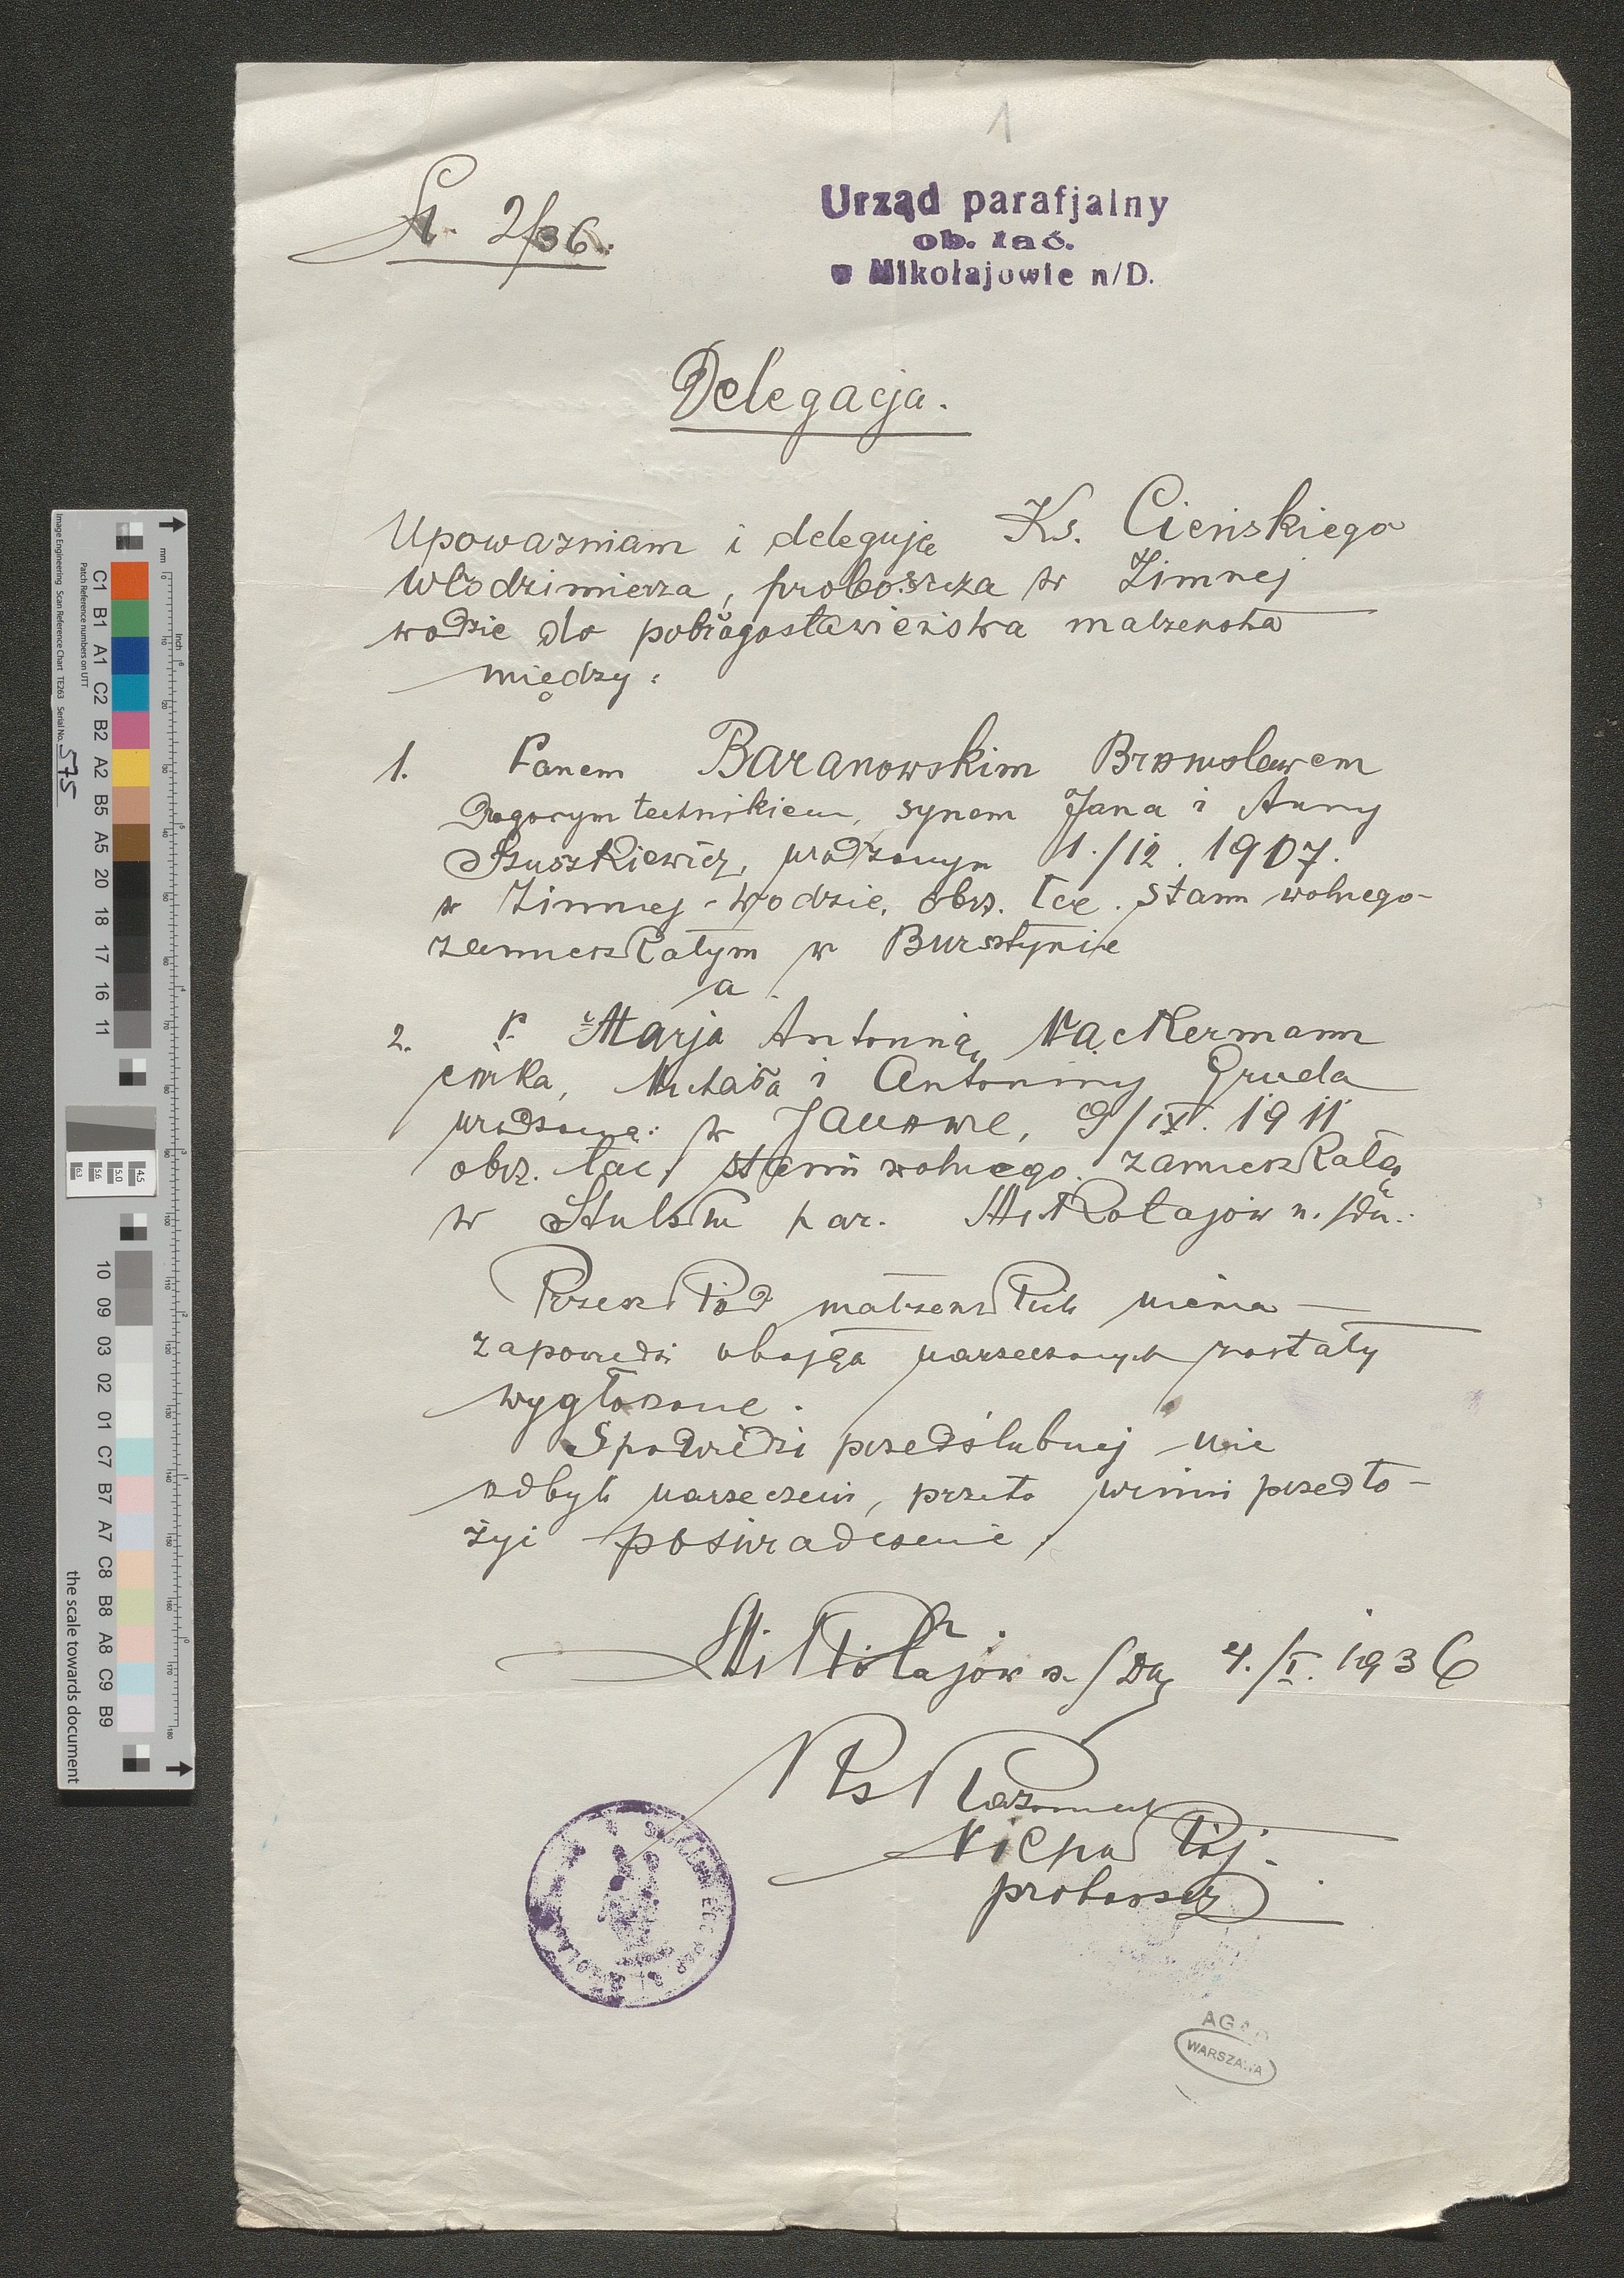 1
L. 2/36.
Urząd parafjalny
ob. łać.
w Mikołajowie n/D.
Delegacja.
Upoważniam i deleguję Ks. Cieńskiego
Włodzimierza, proboszcza w Zimnej
wodzie do pobłogosławieństwa małżeństwa
między:
1. Panem Baranowskim Bronisławem
Drogowym technikiem, synem Jana i Anny
urodzonym 1./12. 1907.
w Zimnej-Wodzie, obrz. łać. stanu wolnego-
zamieszkałym w Bursztynie
a
2. P. Marją Antoniną Wackermann
córka, Michała i Antoniny Gruda
urodzoną w Janowie, 9/IX. 1911
obrz. łać. stanu wolnego. zamieszkałą
w Stulsku par. Mikołajów n./Dn.
Przeszkód małżeńskich niema —
zapowiedzi obojga narzeczonych zostały
wygłoszone.
Spowiedzi przedślubnej nie
odbyli narzeczeni, przeto winni przedło-
żyć poświadczenie.
Mikołajów n./Dn 4./I. 1936
Ks Kazimierz
proboszcz
WARSZAWA
Image Engineering Scan Reference Chart TE263 Serial No. 575
Patch Reference numbers on UTT
mm
inch
C1 B1 A1 C2 B2 A2 B5 A5 20 18 17 16 11
10 09 03 02 01 C7 B7 A7 C8 B8 A8 C9 B9
the scale towards document